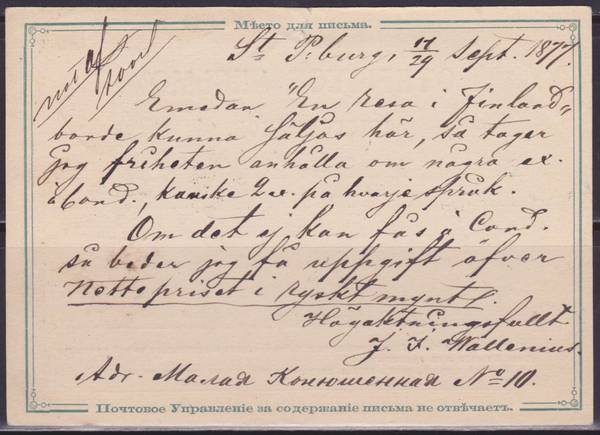 Мѣсто для письма.
St P:burg, 17/29 Sept. 1877.
Emedan "En resa i Finland"
borde kunna säljas här, så tager
jag friheten anhålla om några ex.
à Cond., kanske 2 ex. på hvarje språk.
Om det ej kan fås à Cond.
så beder jag få uppgift öfver
Nettopriset i ryskt mynt.
Högaktningsfullt
J. F. Wallenius.
Adr. Малая Конюшенная № 10.
Почтовое Управленіе за содержаніе письма не отвѣчаетъ.